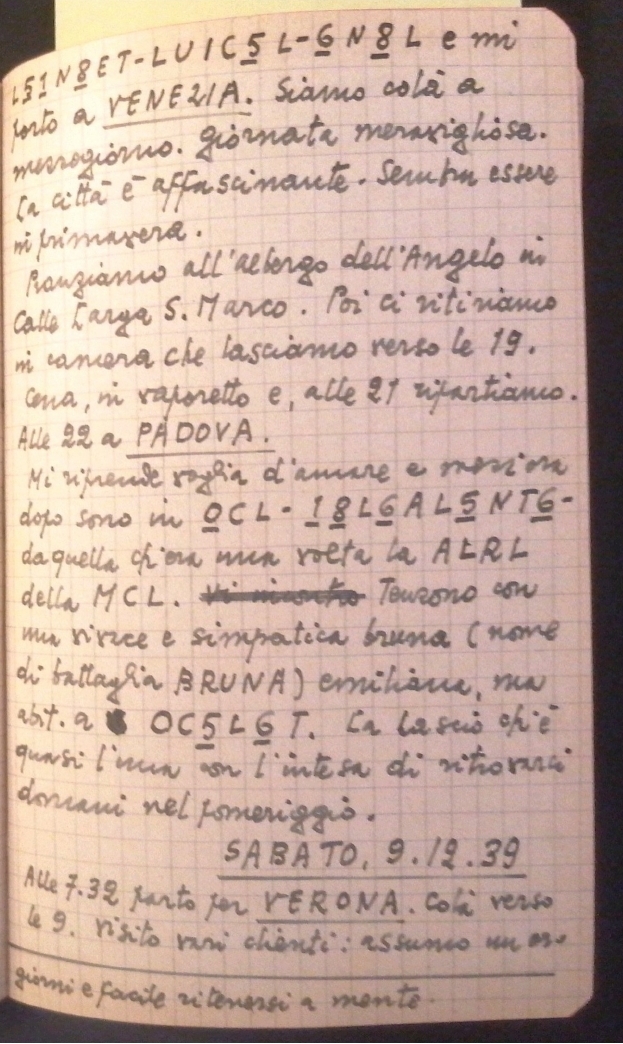 L51N8ET-LUIC5L-6N8L e mi
porto a VENEZIA. Siamo colà a
mezzogiorno. Giornata meravigliosa.
La città è affascinante. Sembra essere
in primavera.
Pranziamo all'albergo dell'Angelo in
Calle Larga S. Marco. Poi ci ritiriamo
in camera che lasciamo verso le 19.
Cena, in vaporetto e, alle 21 ripartiamo.
Alle 22 a PADOVA.
Mi riprende voglia d'amare e mezz'ora
dopo sono in OCL-18L6AL5NT6-
da quella ch'era una volta la ALRL
della MCL. Tenzono con
una vivace e simpatica bruna (nome
di battaglia BRUNA) emiliana, ma
abit. a OC5L6T. La lascio ch'è
quasi l'una con l'intesa di ritrovarci
domani nel pomeriggio.
SABATO, 9.12.39
Alle 7.32 parto per VERONA. Colà verso
le 9. Visito vari clienti: assumo un or-
giorni e facile ritenersi a mente.